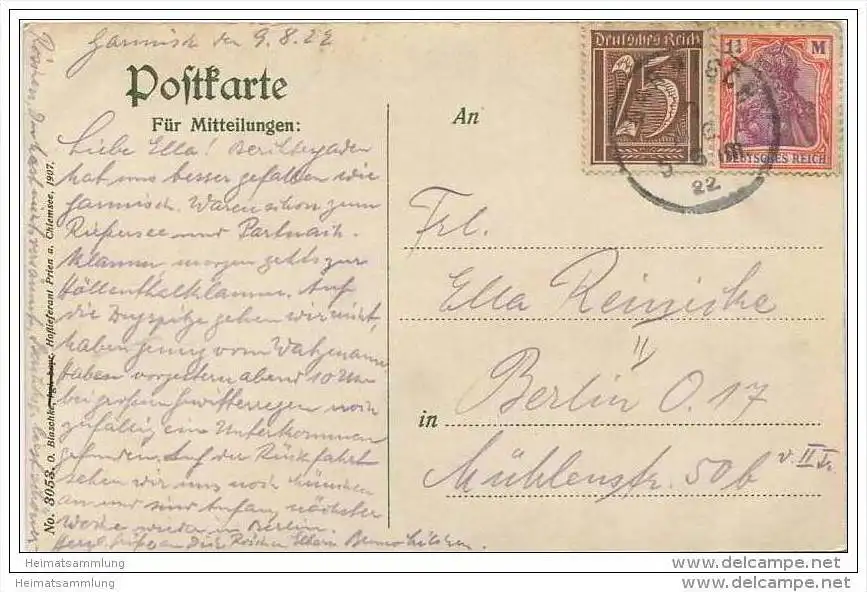 Garmisch den 9.8.22
Postkarte
Für Mitteilungen:
Liebe Ella! Berchtesgaden
hat uns besser gefallen wie
Garmisch. Waren schon zum
Rießersee und Partnach-
klamm, morgen gehts zur
Höllenthalklamm. Auf
die Zugspitze gehen wir nicht,
haben genug vom Watzmann
Haben vorgestern abend 10 Uhr
bei großem Gewitterregen noch
zufällig ein Unterkommen
gefunden. Auf der Rückfahrt
sehen wir uns noch München
an und sind Anfang nächster
Woche wieder in Berlin.
Herzl. Grüße an Dich Röschen Eltern
No. 3053. O. Blaschke, Hoflieferant Prien a. Chiemsee, 1907.
An
Deutsches Reich
75
1¼ M
DEUTSCHES REICH
22
Frl.
Ella Reinicke
in
Berlin O. 17
Mühlenstr. 50b v. II Tr.
Heimatsammlung
Heimatsammlung
www.delcampe.net
www.delcampe.net